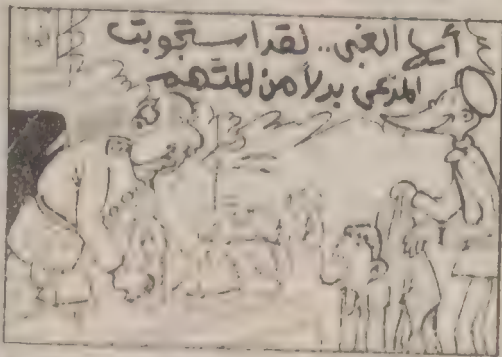 أيها الغبي.. لقد استجوبت
المدعي بدلاً من المتهم